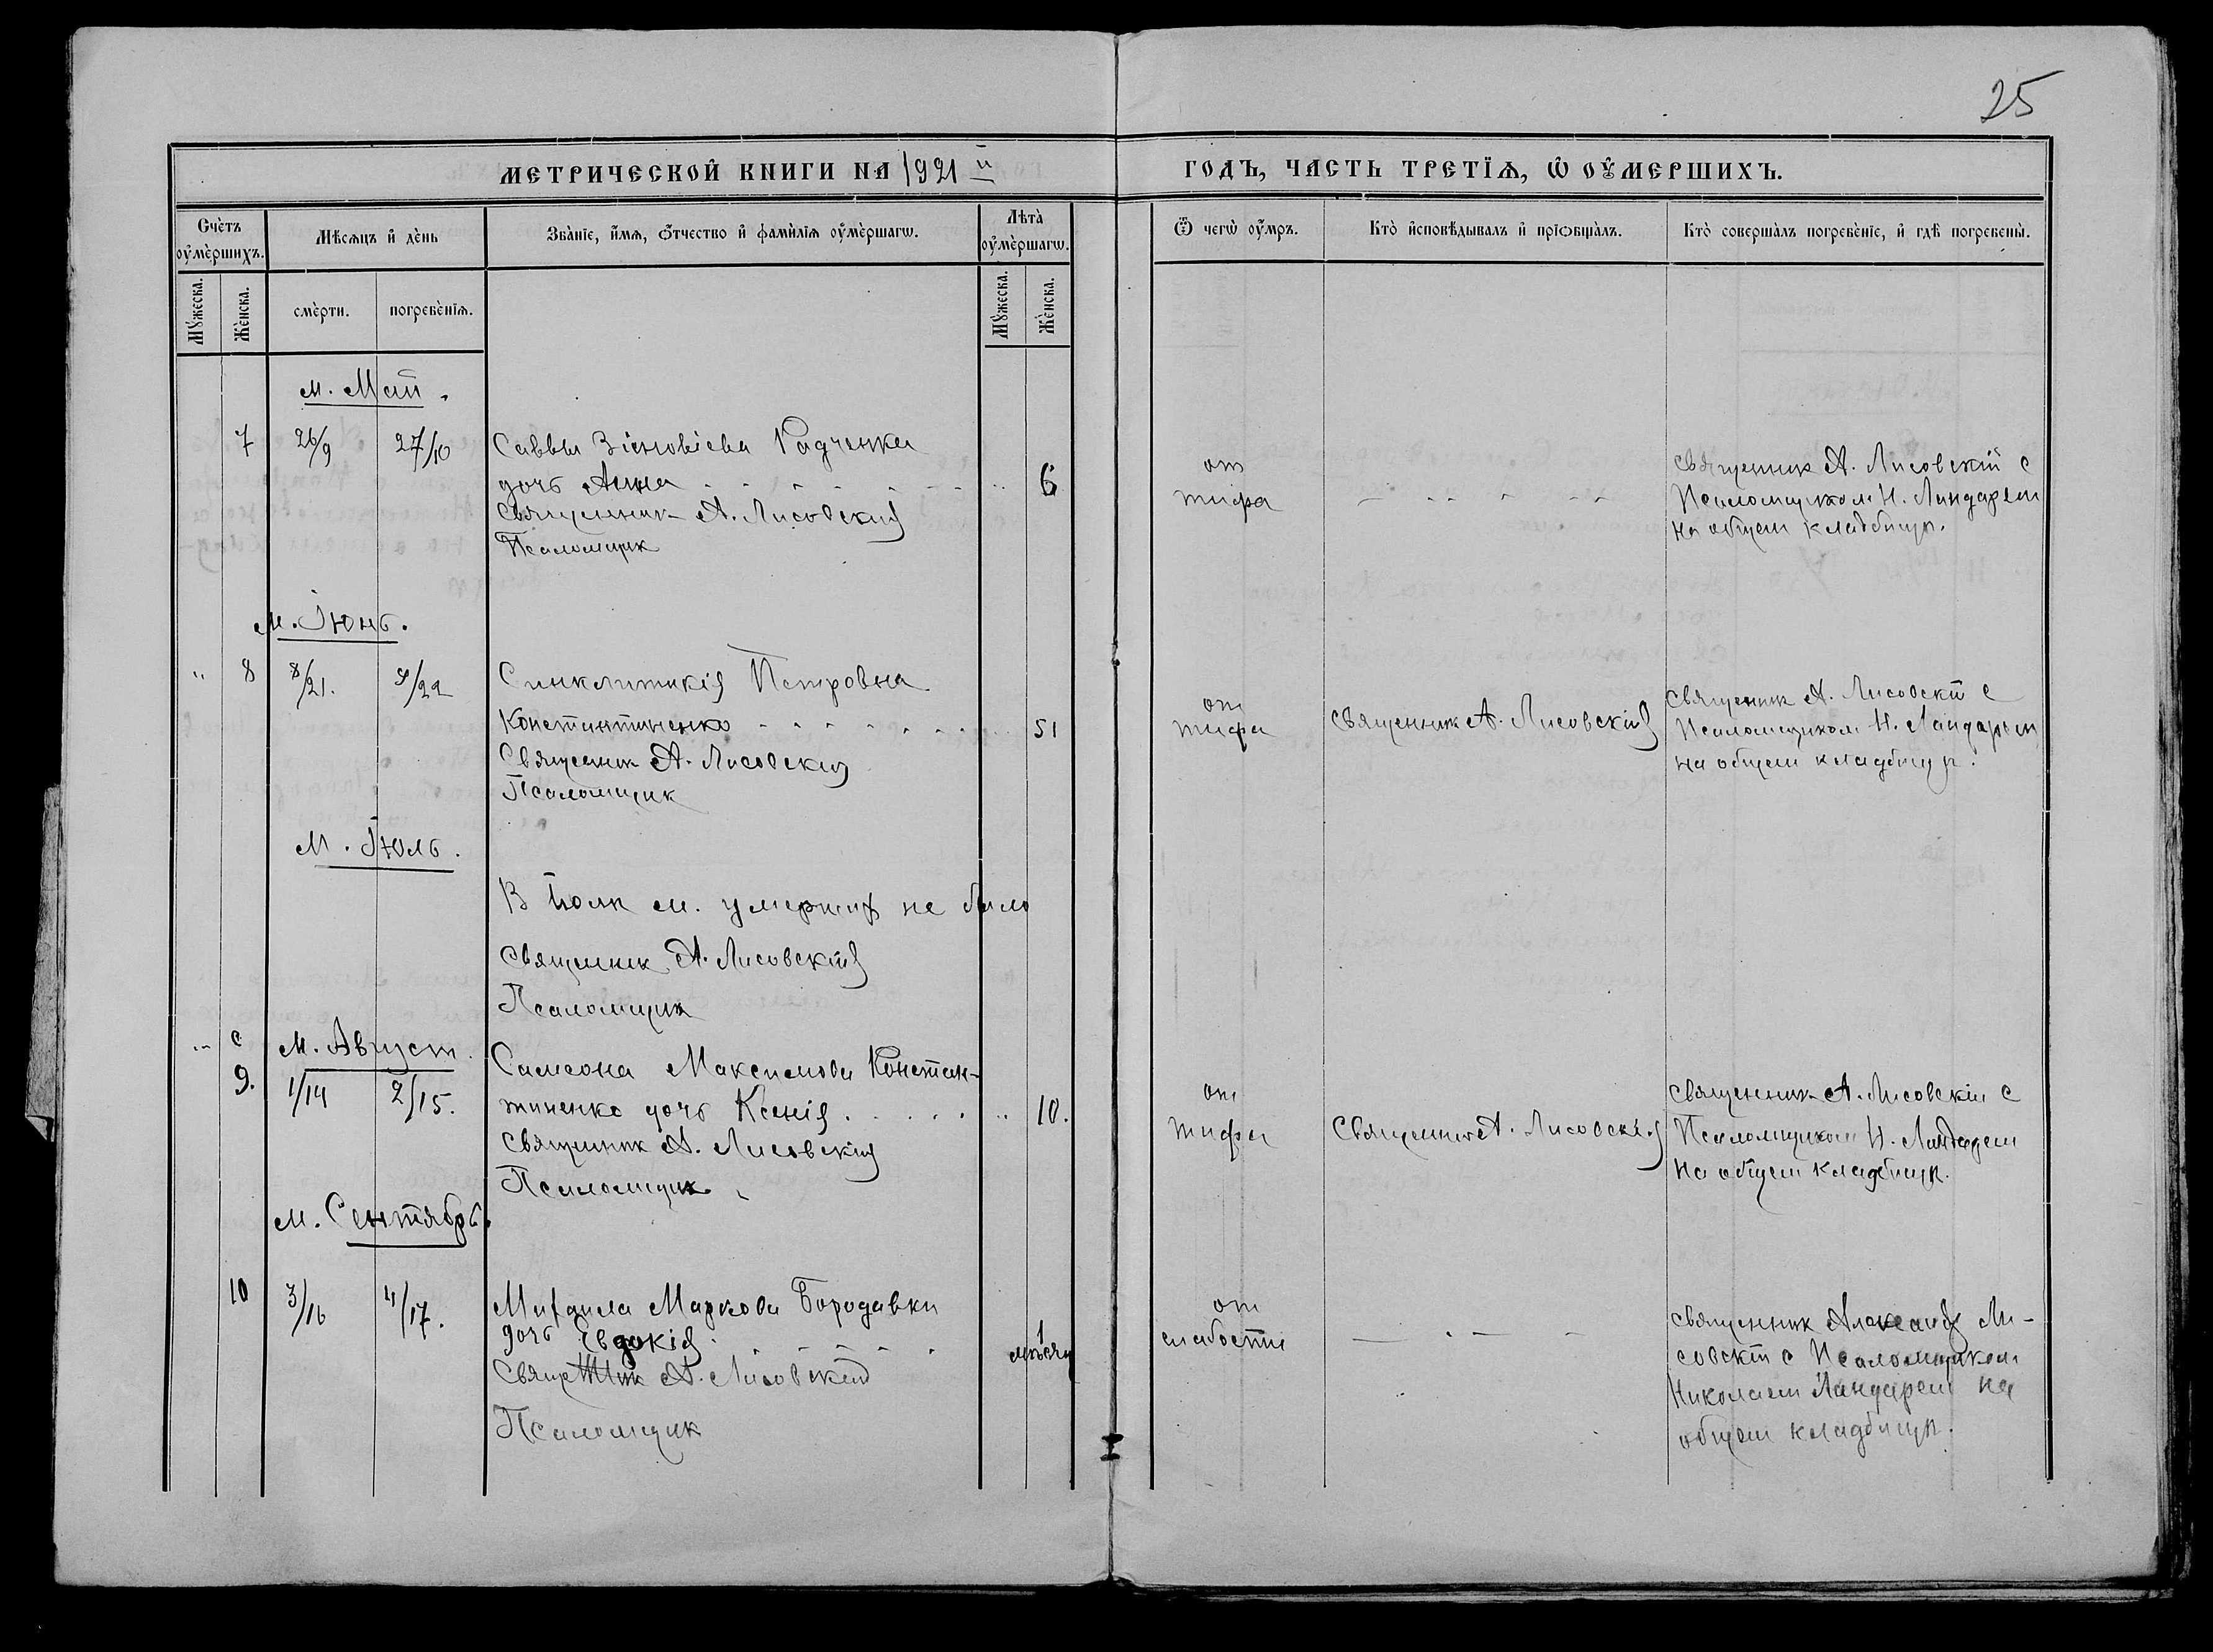 25
МЕТРИЧЕСКОЙ КНИГИ НА 1921 й ГОДЪ, ЧАСТЬ ТРЕТІѦ, Ѡ ОУМЕРШИХЪ.
Счетъ оумершихъ.
Мѣсяцъ и день
Званіе, имя, отчество и фамилія оумершагѡ.
Лѣта оумершагѡ.
Ѿ чегѡ оумръ.
Кто исповѣдывалъ и пріобщалъ.
Кто совершалъ погребеніе, и гдѣ погребены.
Мужеска.
Женска.
смерти.
погребенія.
Мужеска.
Женска.
м. Май.
7 26/9 27/10 Саввы Зіновіева Радченка
дочь Анна 6
Священник А. Лисовский
Псаломщик
от
тифа
Священник А. Лисовскій с
Псаломщиком Н. Ландарем
на общем кладбищѣ.
м. Іюнь.
" 8 8/21. 9/22 Синклитикія Петровна
Константиненко 51
Священик А. Лисовский
Псаломщик
от
тифа
Священник А. Лисовскій
Священик А. Лисовскій с
Псаломщиком Н. Ландарем
на общем кладбищѣ.
м. Іюль.
В Іюлѣ м. умерших не было
Священник А. Лисовскій
Псаломщик
м. Август.
" 9. 1/14 2/15. Самсона Максимова Констан-
тиненко дочь Ксенія " 10.
Священик А. Лисовскій
Псаломщик
от
тифа
Священник А. Лисовскій
Священник А. Лисовскій с
Псаломщиком Н. Ландарем
на общем кладбищѣ.
м. Сентябрь.
10 3/16 4/17. Михаила Маркова Бородавки
дочь Евдокія 1
мѣсяц
Священник А. Лисовский
Псаломщик
от
слабости
Священник Александр Ли-
совскій с Псаломщиком
Николаем Ландарем на
общем кладбищѣ.